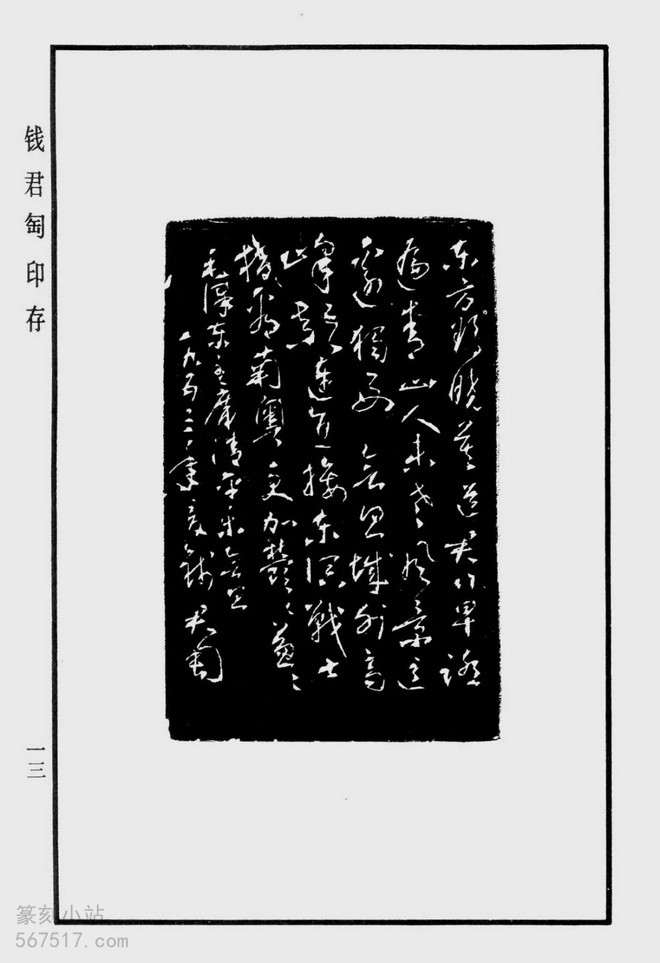 钱君匋印存
一三
东方欲晓莫道君行早踏
遍青山人未老风景这
边独好会昌城外高
峰颠连直接东溟战士
指看南粤更加郁々葱々
毛泽东主席清平乐会昌
一九五 年 钱君匋
篆刻小站
567517.com